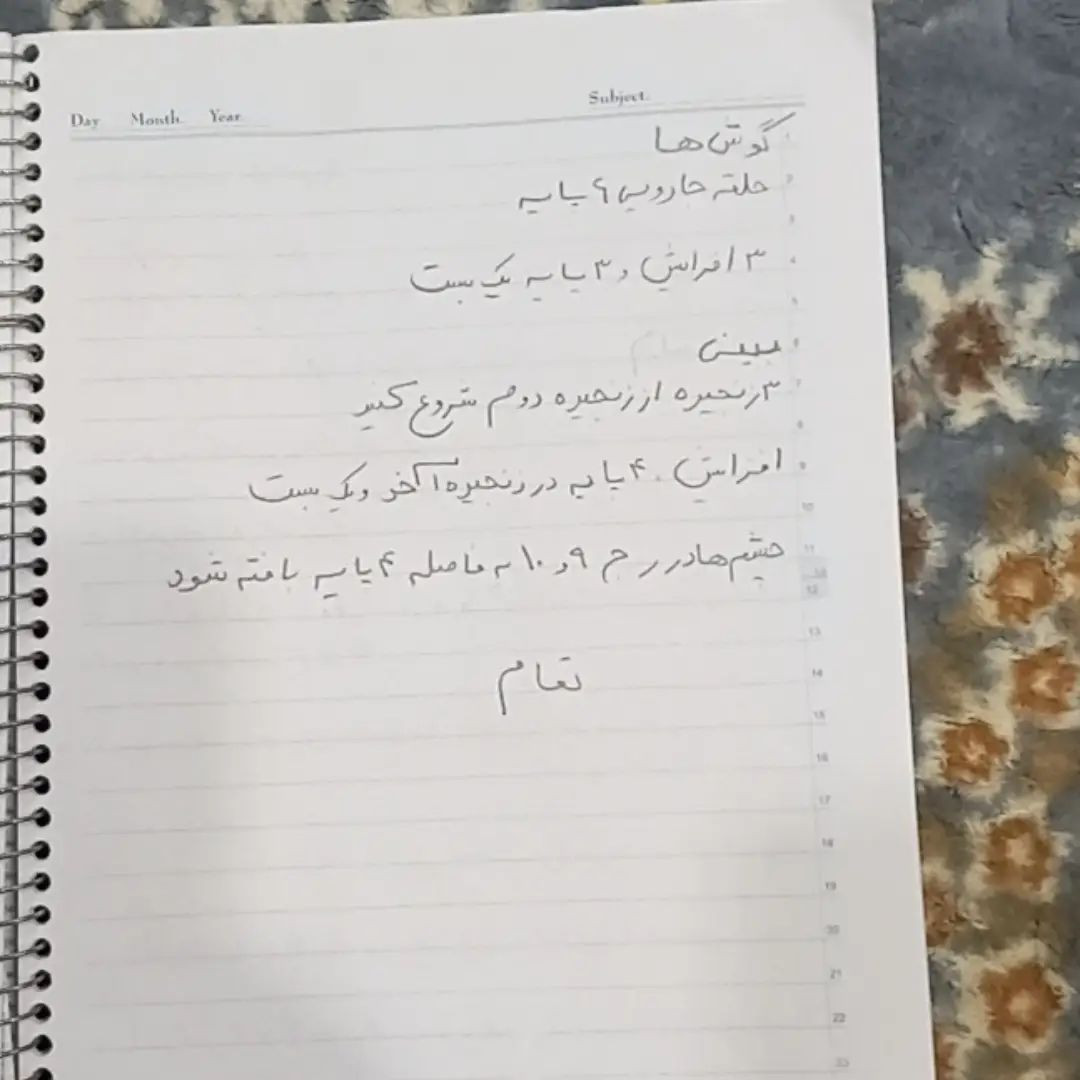 Day Month Year Subject
گوش ها
حلقه جادویی ۶ پایه
۳ افزایش و ۳ پایه یک بست
بینی
۳ زنجیره از زنجیره دوم شروع کنید
افزایش . ۴ پایه در زنجیره آخر و یک بست
چشم ها در رج ۹ و ۱۰ به فاصله ۴ پایه بافته شود
تمام
1
2
3
4
5
6
7
8
9
10
11
12
13
14
15
16
17
18
19
20
21
22
23